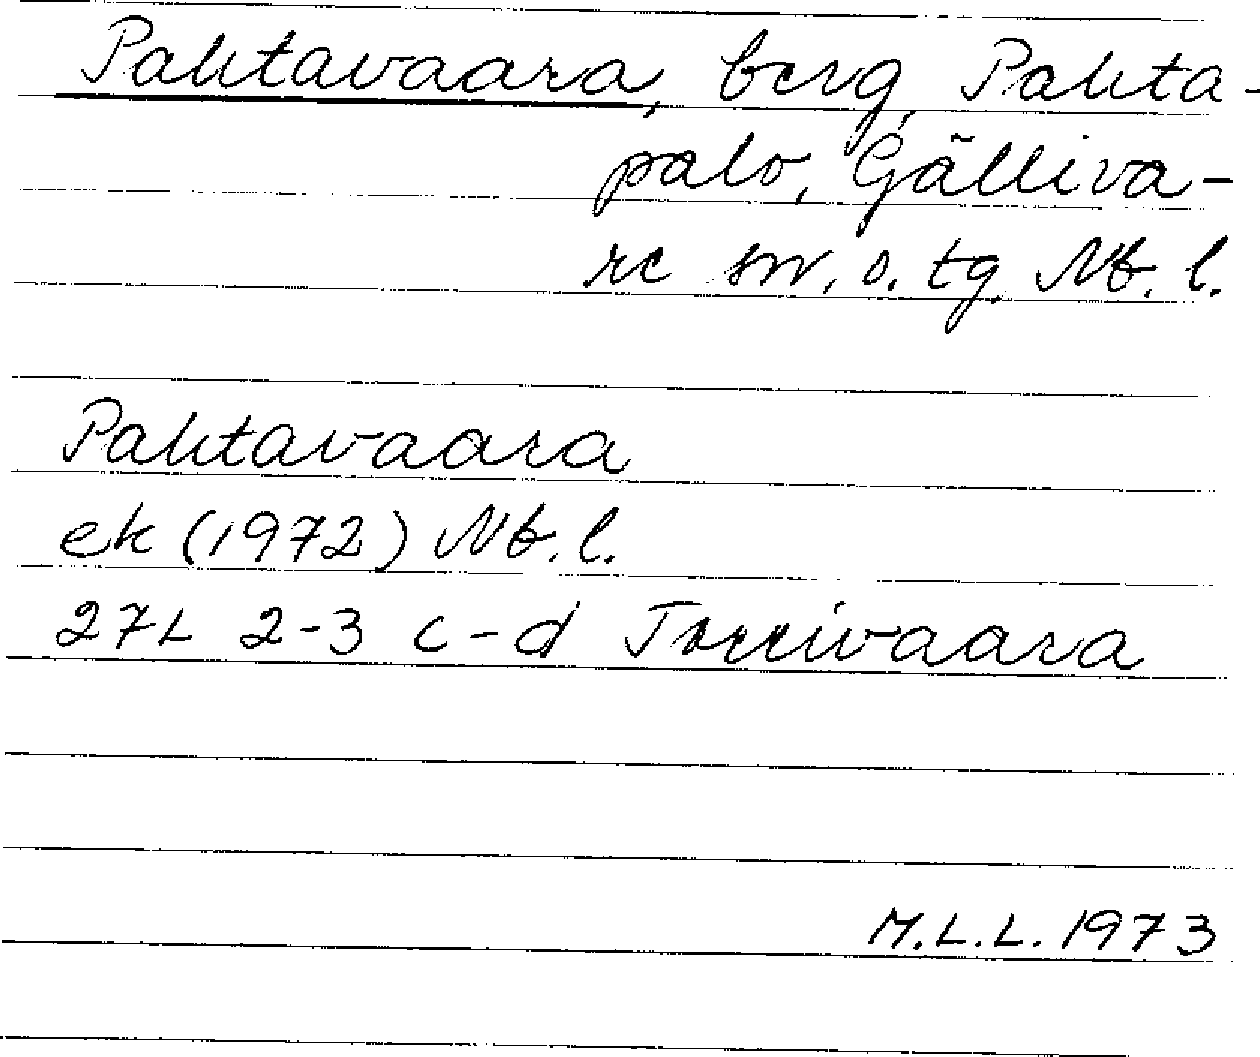 Pahtavaara, berg, Pahta-
palo, Gälliva-
re sn, o. tg. Nb. l.
Pahtavaara
ek (1972) Nb. l.
27L 2-3 c-d Torrivaara
M.L.L. 1973